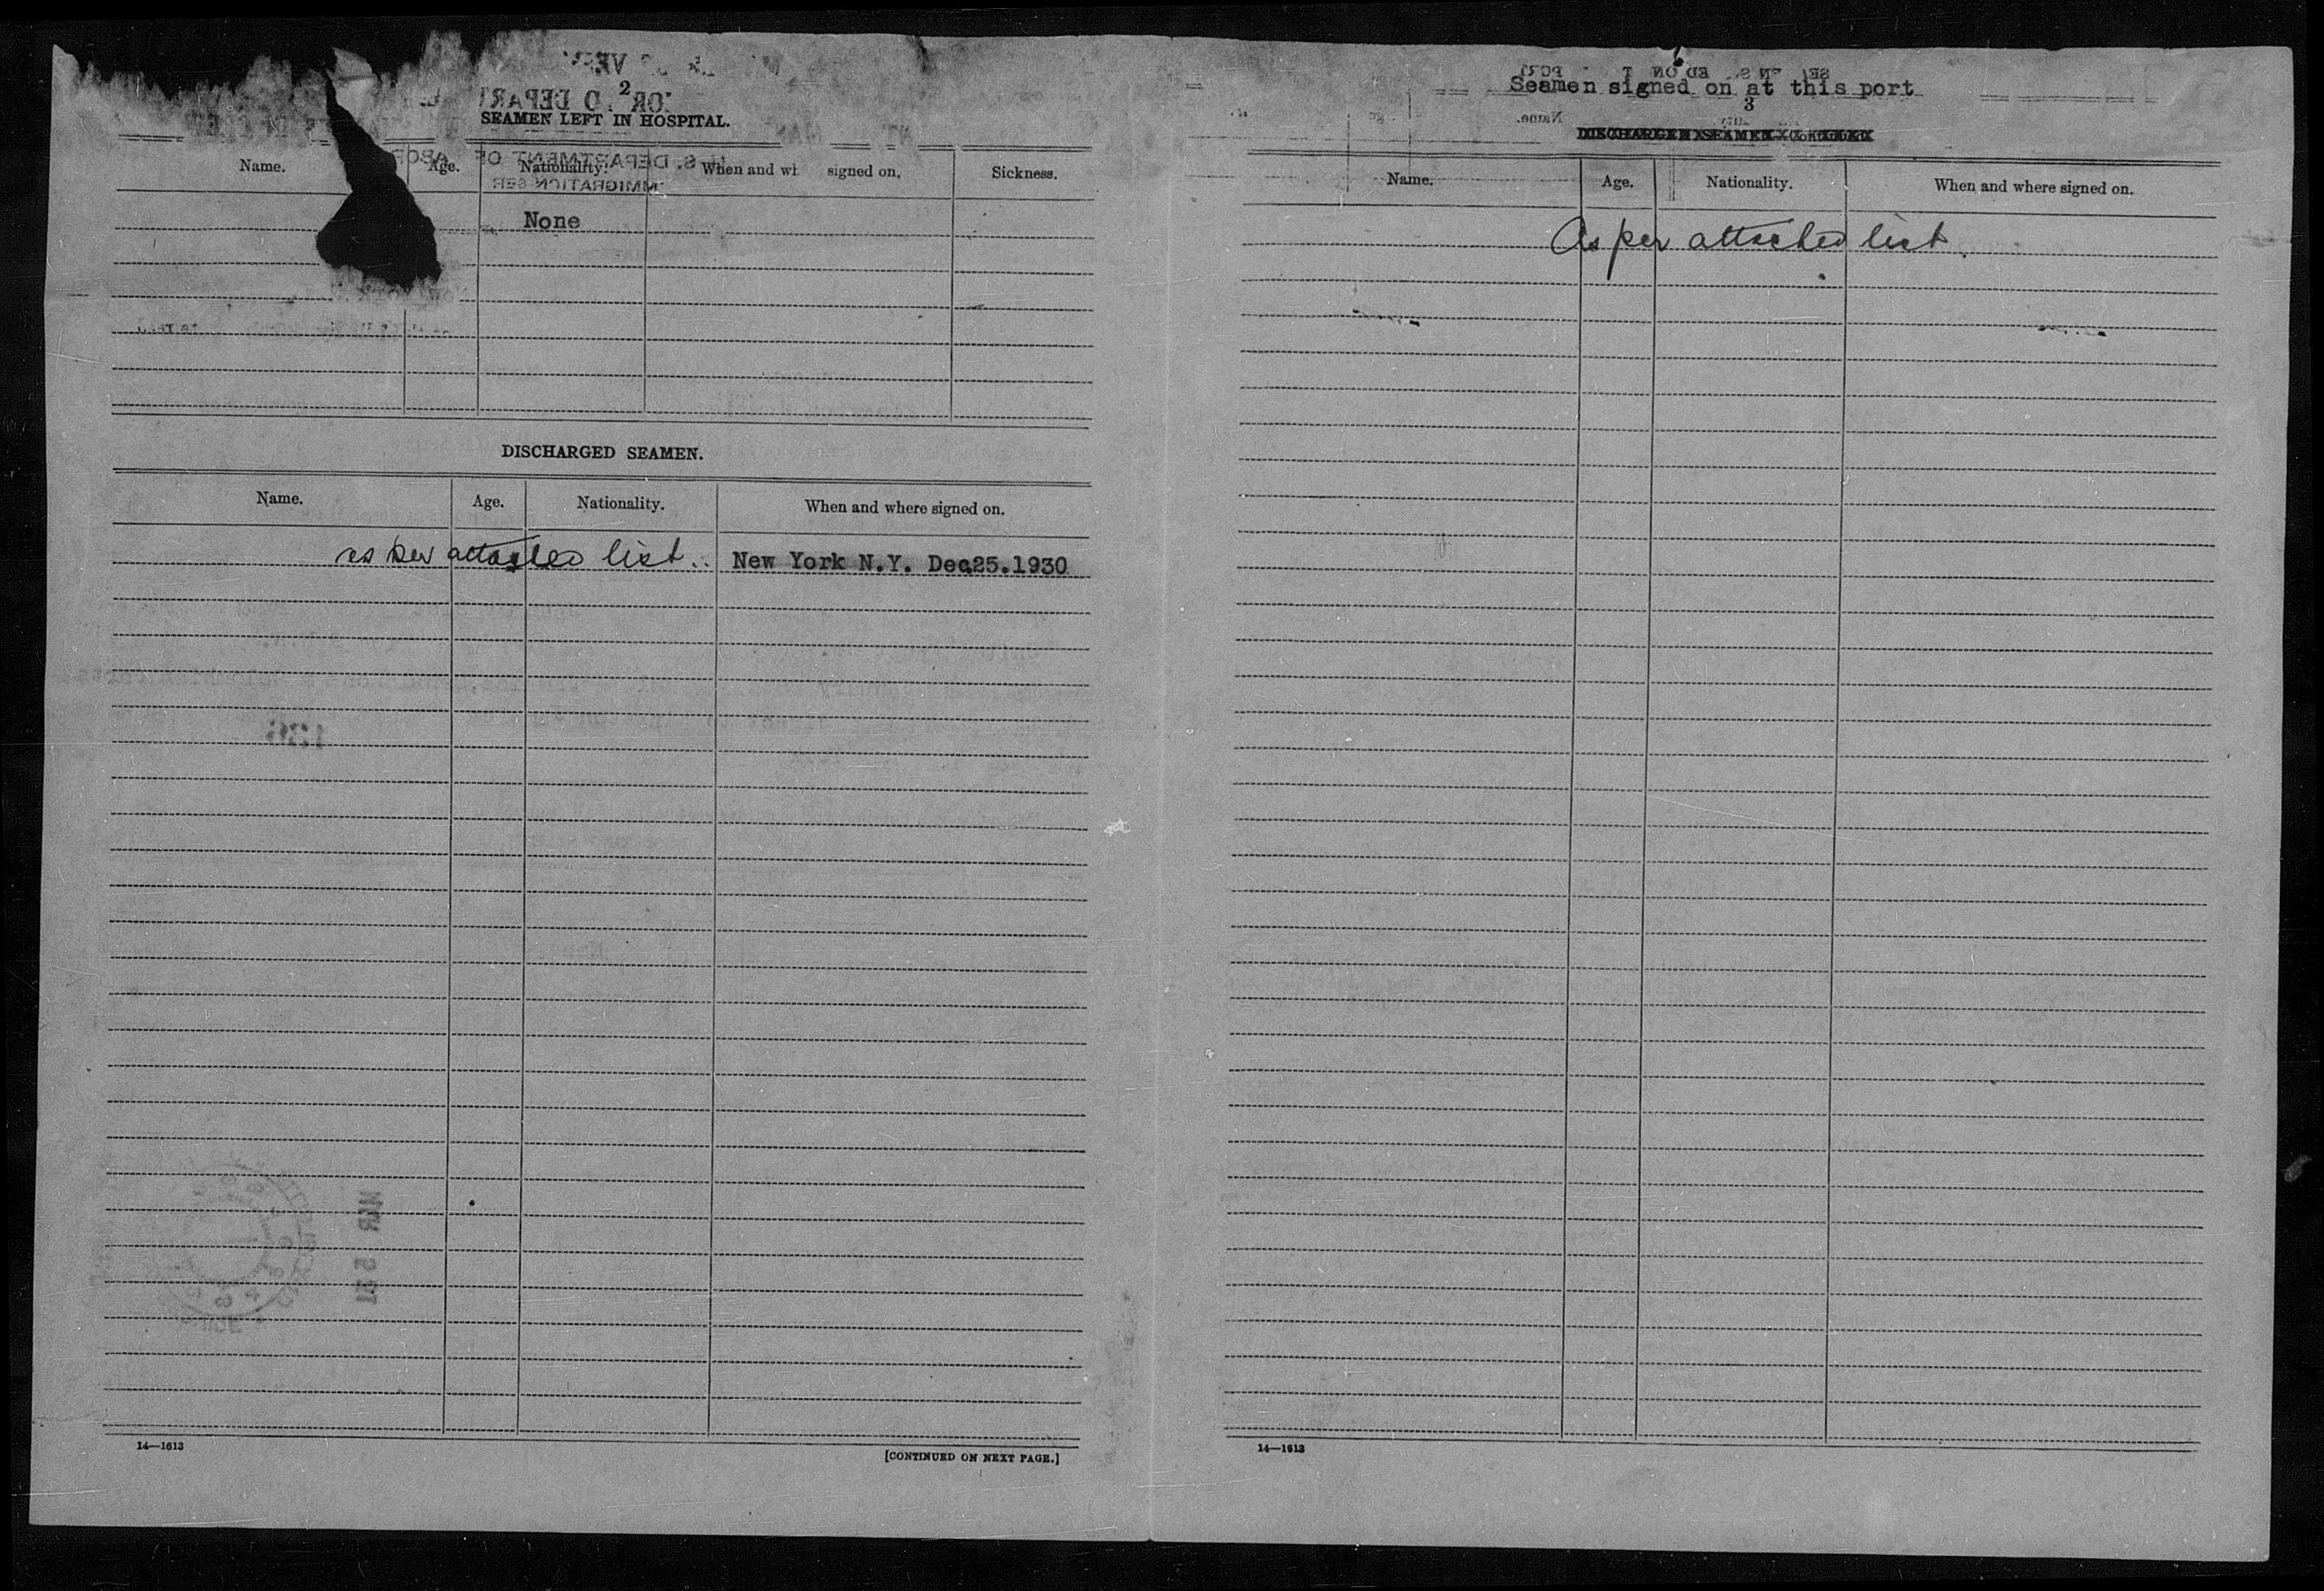 2
SEAMEN LEFT IN HOSPITAL.
Name. Age. Nationality. When and wh signed on. Sickness.
None
DISCHARGED SEAMEN.
Name. Age. Nationality. When and where signed on.
as per attached list.. New York N.Y. Dec25.1930
14—1613
[CONTINUED ON NEXT PAGE.]
Seamen signed on at this port
3
Name. Age. Nationality. When and where signed on.
As per attached list.
14—1613